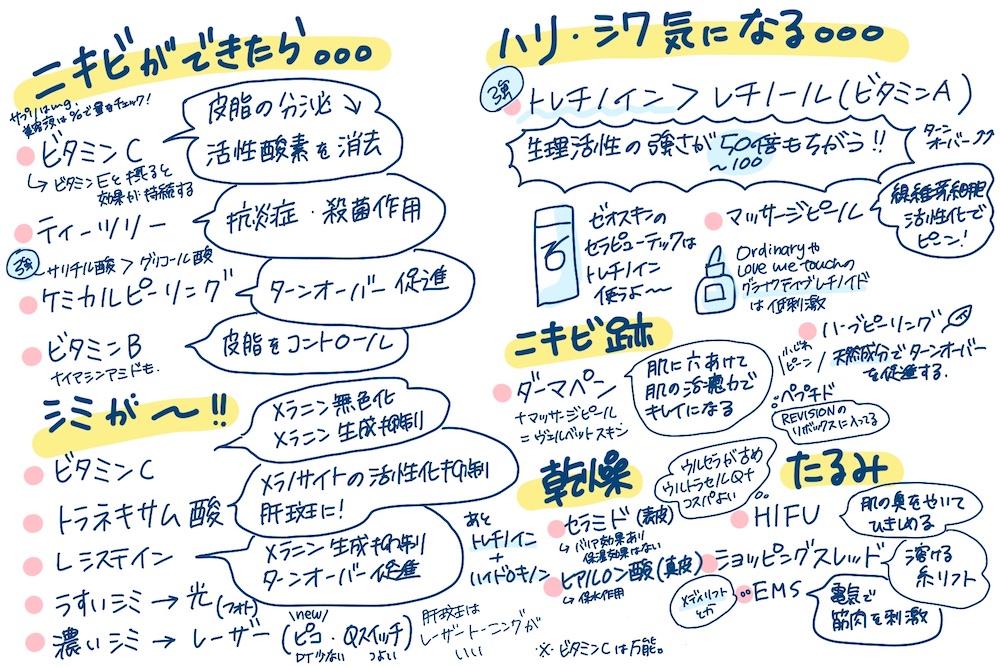 ニキビができたら。。。
サプリはmg.
美容液は%で量をチェック!
ビタミンC
皮脂の分泌↘
活性酸素を消去
↳ビタミンEと摂ると
効果が持続する
ティーツリー
抗炎症・殺菌作用
強
サリチル酸 > グリコール酸
ケミカルピーリング
ターンオーバー促進
ビタミンB
ナイアシンアミドも.
皮脂をコントロール
シミが〜!!
ビタミンC
メラニン無色化
メラニン生成抑制
トラネキサム酸
メラノサイトの活性化抑制
肝斑に!
Lシステイン
メラニン生成抑制
ターンオーバー促進
あと
トレチノイン
+
ハイドロキノン
うすいシミ→光(フォト)
濃いシミ→レーザー(ピコ・Qスイッチ)
new/
つよい
肝斑は
レーザートーニングが
いい
ハリ・シワ気になる。。。
強
トレチノイン > レチノール(ビタミンA)
生理活性の強さが50倍もちがう!!
〜100
ターン
オーバー↗↗
ゼオスキンの
セラピューテックは
トレチノイン
使うよ〜
マッサージピール
線維芽細胞
活性化で
ピーン!
Ordinaryや
Love me touchの
グラナクティブレチノイド
は低刺激
ハーブピーリング
天然成分でターンオーバー
を促進する.
ペプチド
REVISIONの
リボックスに入ってる
ニキビ跡
ダーマペン
+マッサージピール
=ヴェルベットスキン
肌に穴あけて
肌の治癒力で
キレイになる
乾燥
セラミド(表皮)
↳バリア効果あり
保湿効果はない
ヒアルロン酸(真皮)
↳保水作用
たるみ
ウルセラがさめ
ウルトラセルQ+
コスパよい
HIFU
肌の奥をやいて
ひきしめる
ショッピングスレッド
溶ける
糸リフト
メディリフト
とか
EMS
電気で
筋肉を刺激
※ビタミンCは万能。